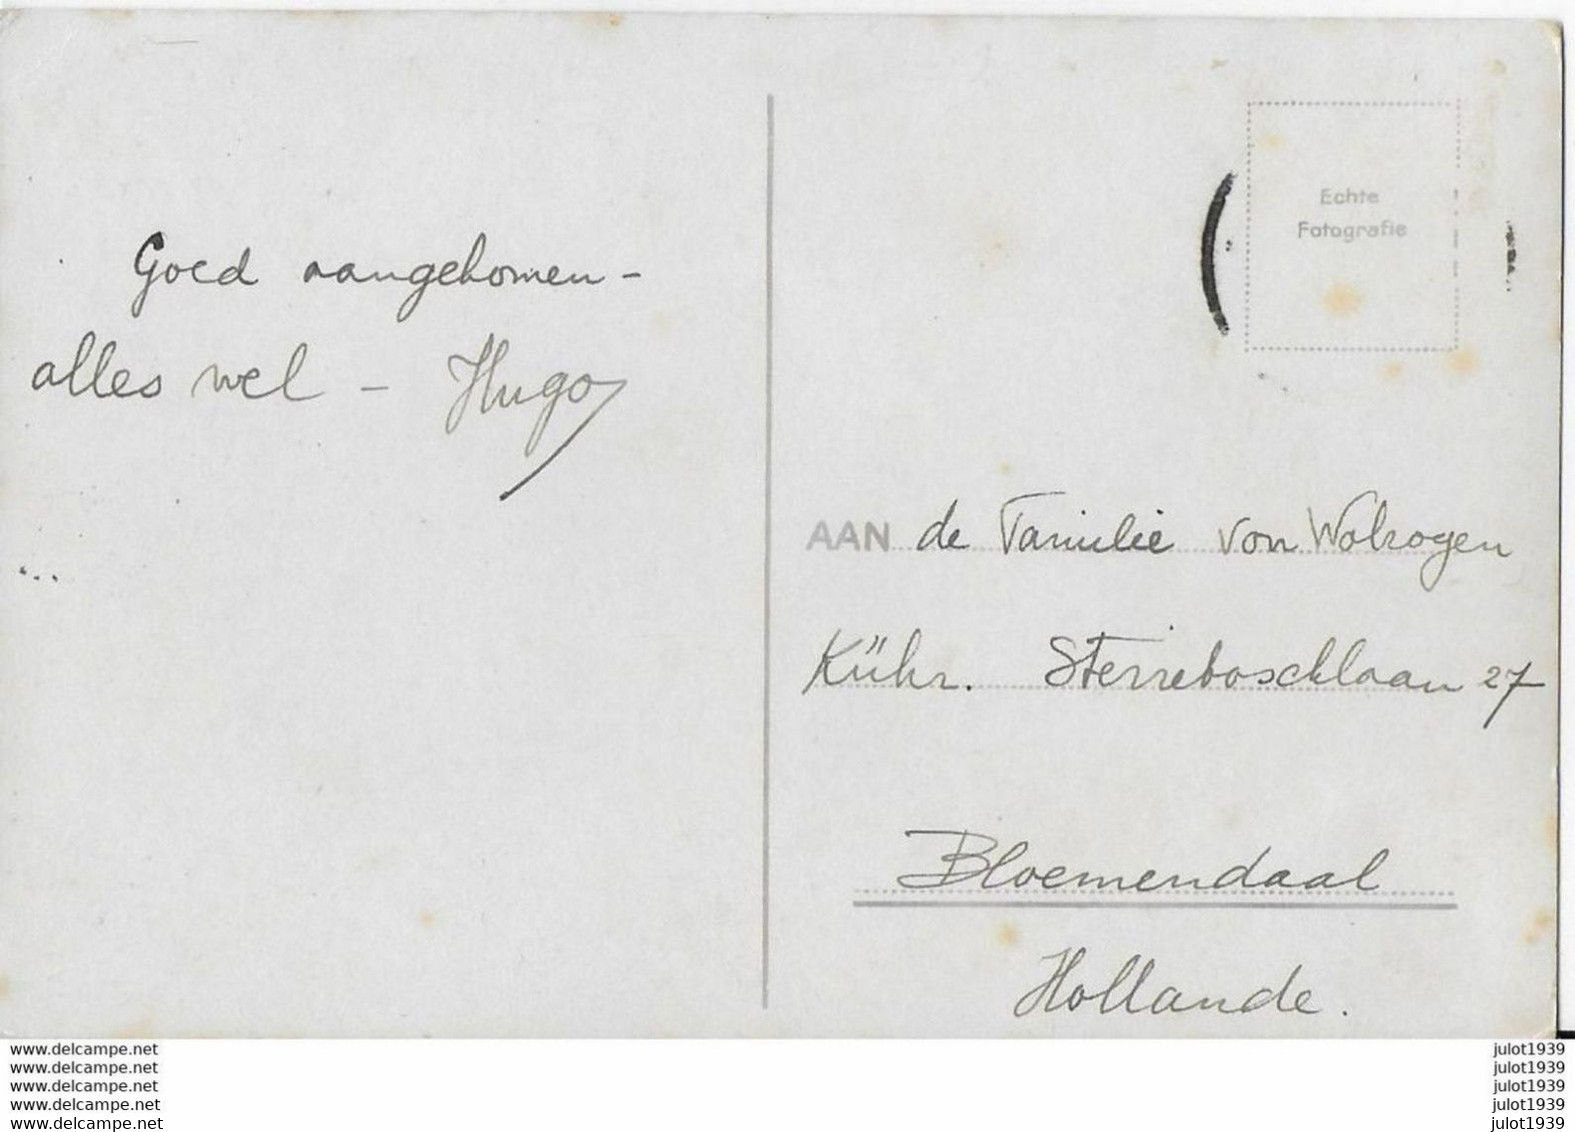 Echte
Fotografie
Goed aangekomen -
alles wel - Hugo
AAN de Familie von Wolzogen
Kühr. Sterreboschlaan 27
Bloemendaal
Hollande.
www.delcampe.net
www.delcampe.net
www.delcampe.net
www.delcampe.net
www.delcampe.net
julot1939
julot1939
julot1939
julot1939
julot1939